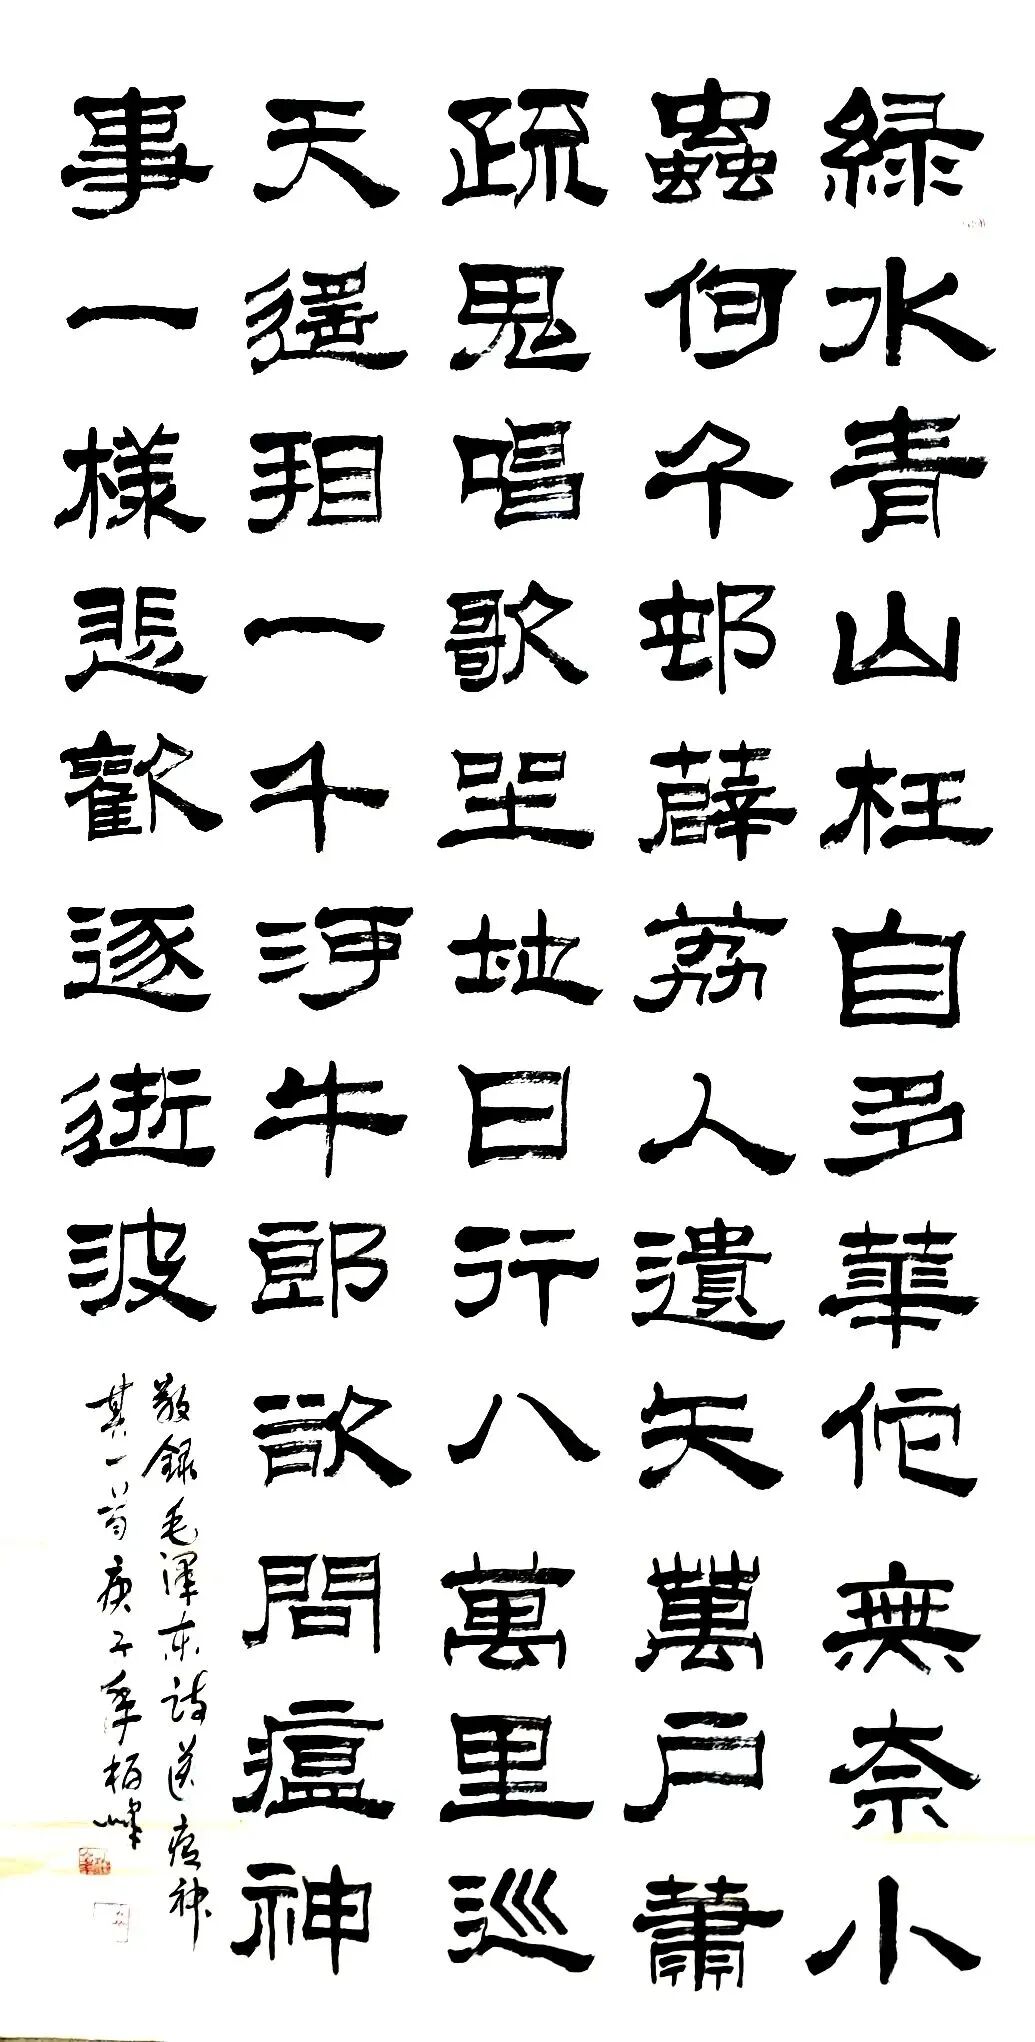 綠水青山枉自多華佗無奈小
蟲何千邨薜荔人遺矢萬戶蕭
疏鬼唱歌坐地日行八萬里巡
天遥看一千河牛郎欲問瘟神
事一樣悲歡逐逝波
敬録毛澤东詩送瘟神
其一首庚子年柏峰